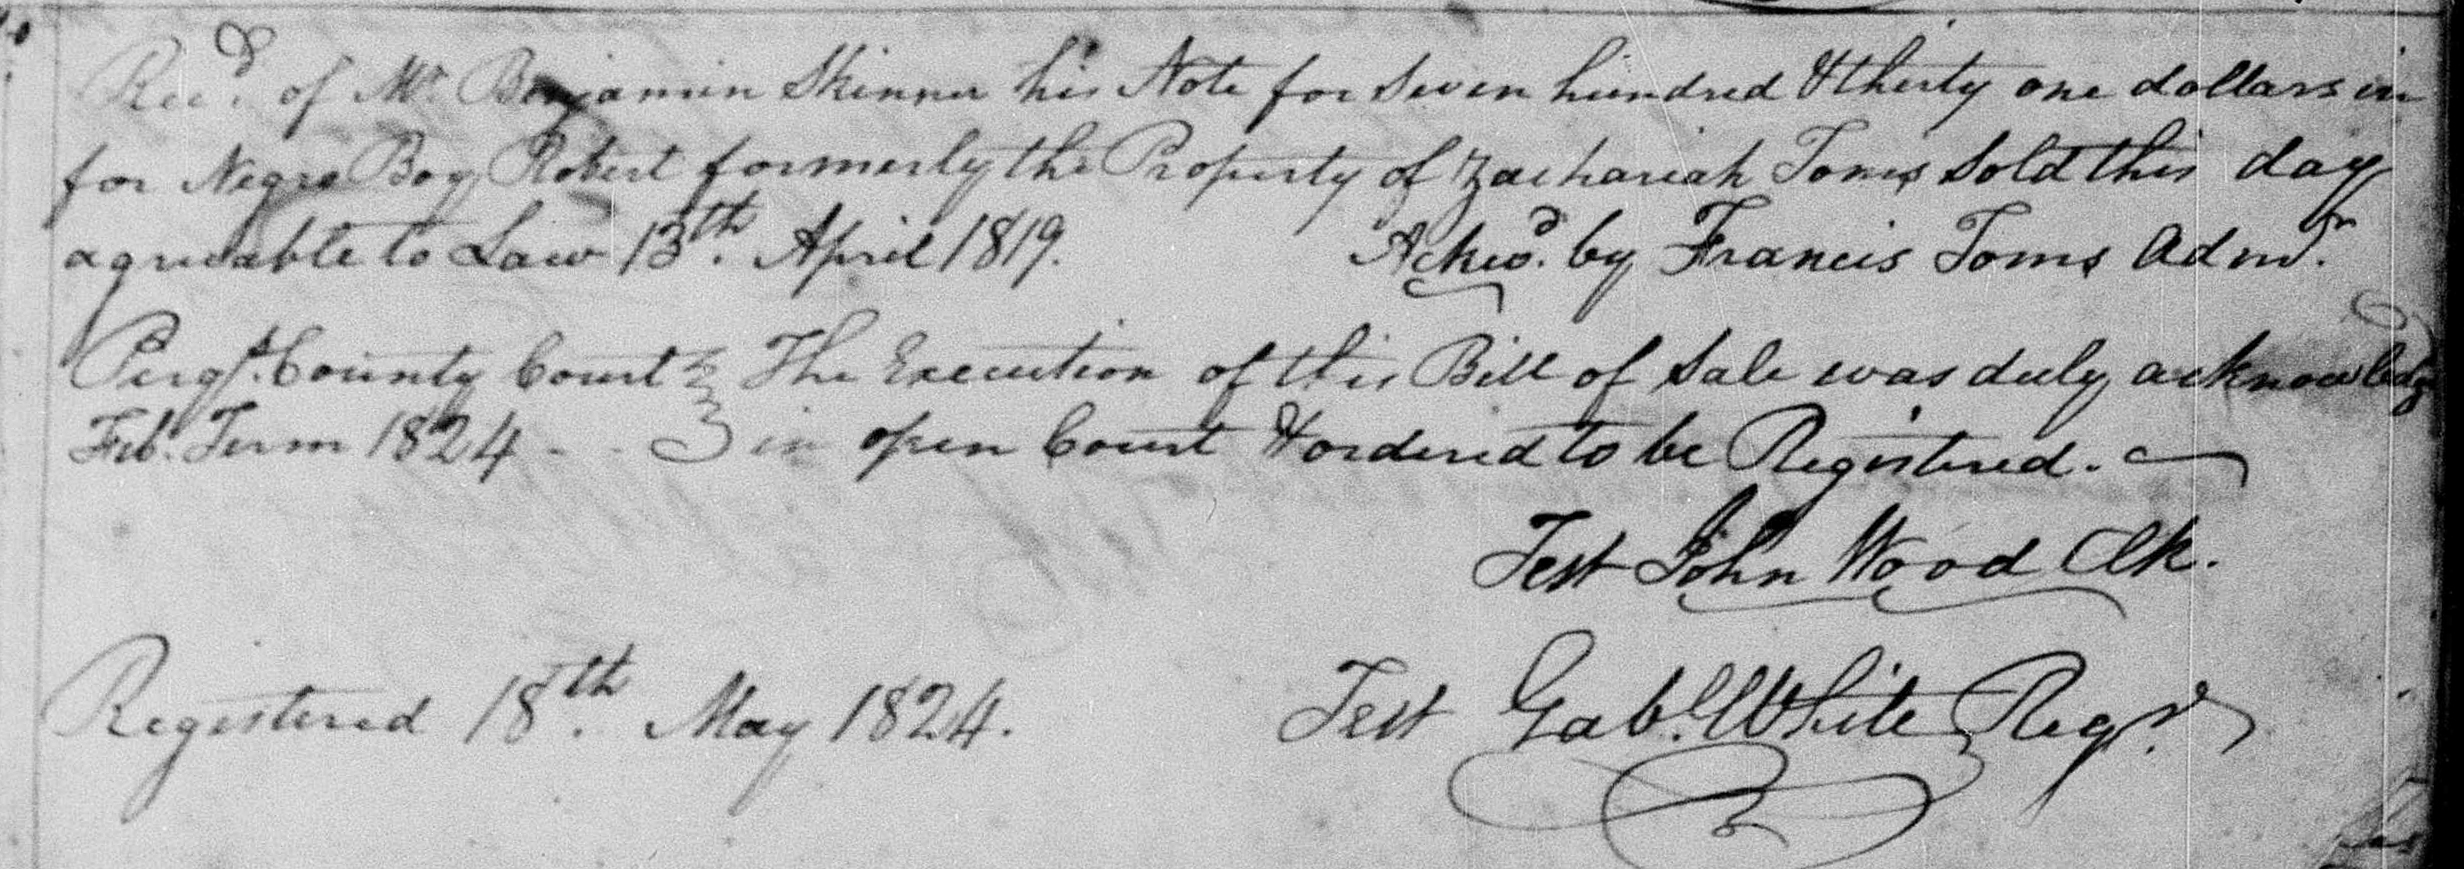 Recd. of Mr. Benjamin Skinner his Note for Seven hundred & thirty one dollars in
for Negro Boy Robert formerly the Property of Zachariah Toms Sold this day
agreeable to Law 13th. April 1819. Ackwd. by Francis Toms Admr.
Perqs. County Court } The Execution of this Bill of Sale was duly acknowledg
Feb. Term 1824 - - } in open Court & ordered to be Registered.
Test John Wood Clk.
Registered 18th. May 1824. Test Gabl. White Regr.